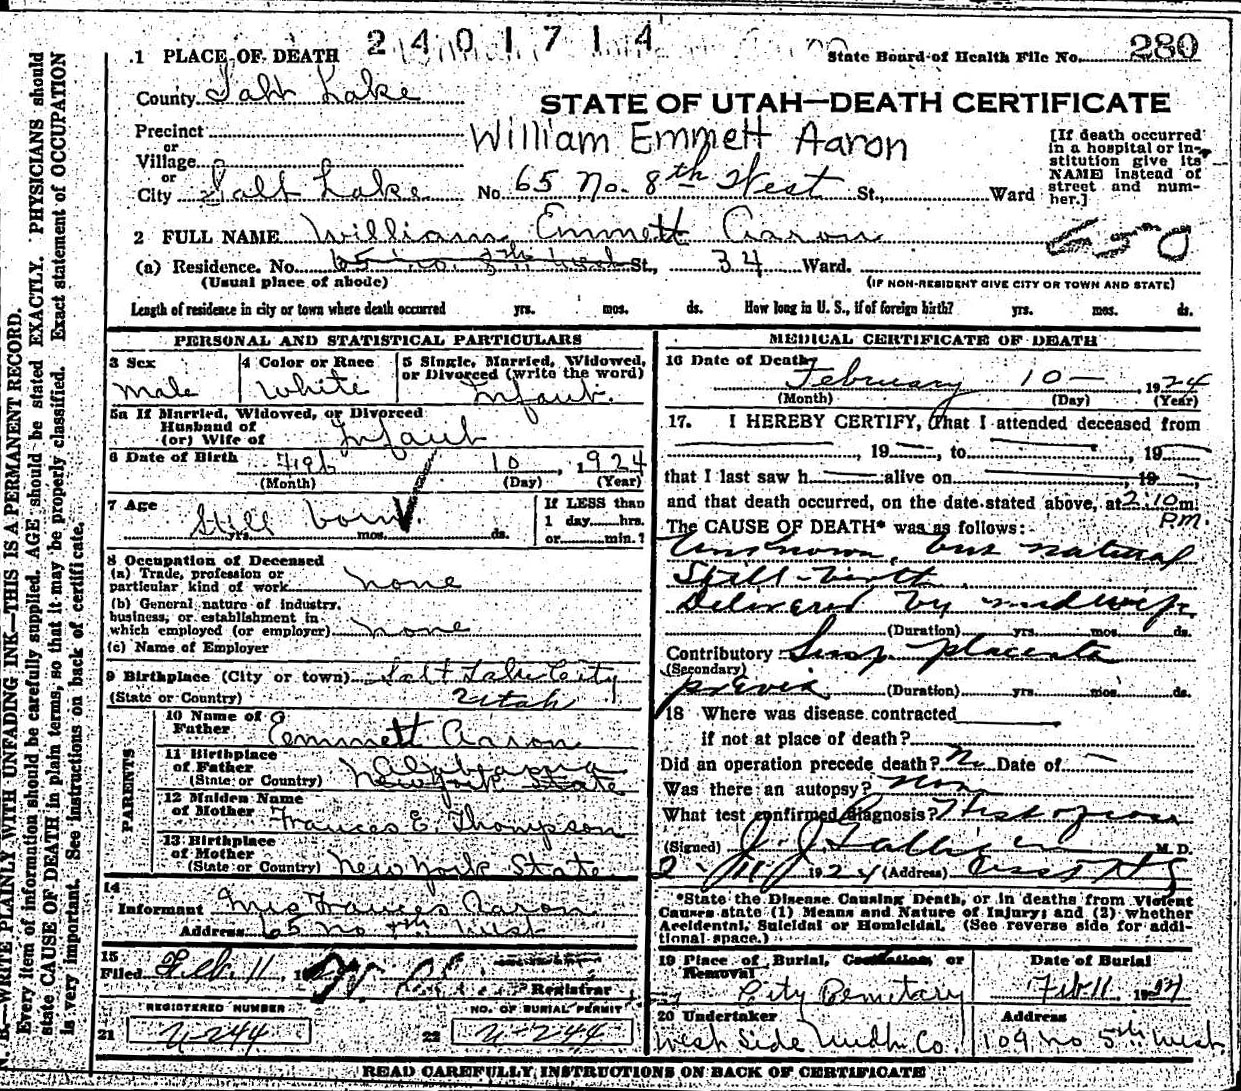 2401714
1 PLACE OF DEATH
State Board of Health File No. 280
County Salt Lake
STATE OF UTAH—DEATH CERTIFICATE
Precinct
or
Village
or
City Salt Lake
William Emmett Aaron
No. 65 No. 8th West St., Ward
[If death occurred in a hospital or institution give its NAME instead of street and number.]
2 FULL NAME William Emmett Aaron
(a) Residence. No. 65 no. 8th West St., 34 Ward.
(Usual place of abode)
(IF NON-RESIDENT GIVE CITY OR TOWN AND STATE)
Length of residence in city or town where death occurred yrs. mos. ds. How long in U. S., if of foreign birth? yrs. mos. ds.
PERSONAL AND STATISTICAL PARTICULARS
3 Sex
Male
4 Color or Race
White
5 Single, Married, Widowed, or Divorced (write the word)
Infant
5a If Married, Widowed, or Divorced
Husband of
(or) Wife of Infant
6 Date of Birth Feb 10, 1924
(Month) (Day) (Year)
7 Age Still born
yrs. mos. ds.
If LESS than
1 day hrs.
or min.?
8 Occupation of Deceased
(a) Trade, profession or
particular kind of work none
(b) General nature of industry,
business, or establishment in
which employed (or employer) none
(c) Name of Employer
9 Birthplace (City or town) Salt Lake City
(State or Country) Utah
PARENTS
10 Name of
Father Emmett Aaron
11 Birthplace
of Father
(State or Country) Alabama
New York State
12 Maiden Name
of Mother Frances E. Thompson
13 Birthplace
of Mother
(State or Country) New York State
14
Informant Mrs Frances Aaron
Address 65 No 8th West
15
Filed Feb. 11, 19
Registrar
REGISTERED NUMBER
21 U-244
NO. OF BURIAL PERMIT
22 U-244
MEDICAL CERTIFICATE OF DEATH
16 Date of Death
February 10 — 1924
(Month) (Day) (Year)
17. I HEREBY CERTIFY, that I attended deceased from
, 19 , to , 19
that I last saw h alive on , 19
and that death occurred, on the date stated above, at 2:10 m.
P.M.
The CAUSE OF DEATH* was as follows:
Unknown, but natural
Still-birth
Delivered by midwife
(Duration) yrs. mos. ds.
Contributory placenta
(Secondary)
previa (Duration) yrs. mos. ds.
18 Where was disease contracted
if not at place of death?
Did an operation precede death? No Date of
Was there an autopsy? None
What test confirmed diagnosis?
(Signed) J. J. M. D.
2-11, 1924 (Address)
*State the Disease Causing Death, or in deaths from Violent
Causes state (1) Means and Nature of Injury; and (2) whether
Accidental, Suicidal or Homicidal. (See reverse side for addi-
tional space.)
19 Place of Burial, Cremation, or
Removal
City Cemetary
Date of Burial
Feb 11 1924
20 Undertaker
West Side Undt. Co.
Address
109 No 5th West
READ CAREFULLY INSTRUCTIONS ON BACK OF CERTIFICATE
N. B.—WRITE PLAINLY WITH UNFADING INK—THIS IS A PERMANENT RECORD.
Every item of information should be carefully supplied. AGE should be stated EXACTLY. PHYSICIANS should
state CAUSE OF DEATH in plain terms, so that it may be properly classified. Exact statement of OCCUPATION
is very important. See instructions on back of certificate.